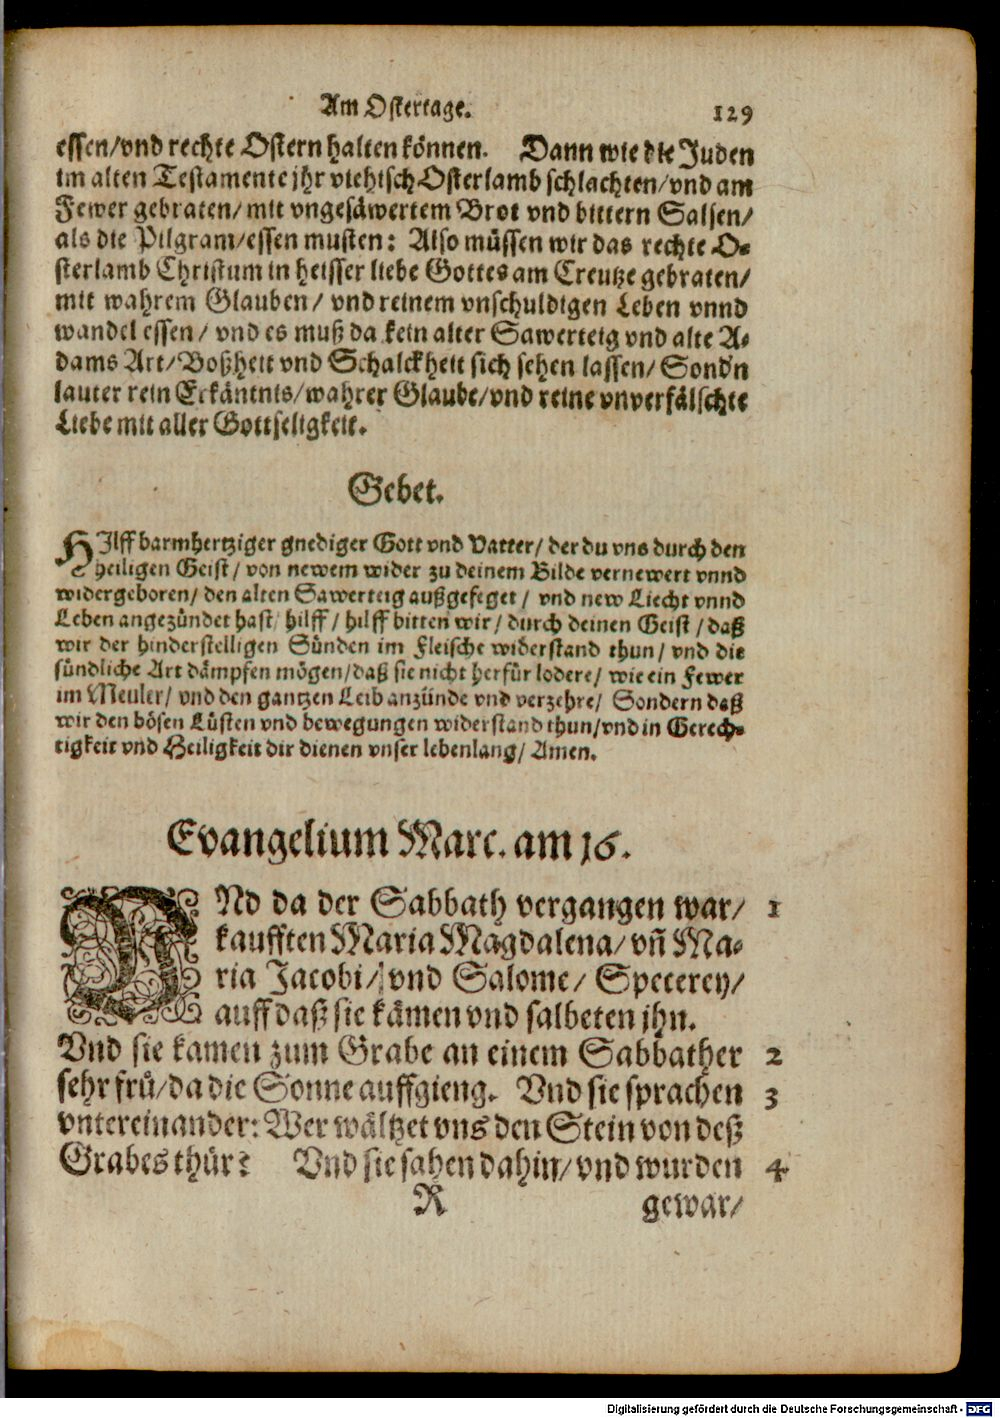 Am Ostertage. 129
essen/vnd rechte Ostern halten können. Dann wie die Juden
im alten Testamente jhr viehisch Osterlamb schlachten/vnd am
Fewer gebraten/ mit vngesäwertem Brot vnd bittern Salsen/
als die Pilgram/essen musten: Also müssen wir das rechte O-
sterlamb Christum in heisser liebe Gottes am Creutze gebraten/
mit wahrem Glauben/ vnd reinem vnschuldigen Leben vnnd
wandel essen/ vnd es muß da kein alter Sawerteig vnd alte A-
dams Art/Boßheit vnd Schalckheit sich sehen lassen/ Sond'n
lauter rein Erkäntnis/wahrer Glaube/vnd reine vnverfälschte
Liebe mit aller Gottseligkeit.
Gebet.
HIlff barmhertziger gnediger Gott vnd Vatter/ der du vns durch den
heiligen Geist/ von newem wider zu deinem Bilde vernewert vnnd
widergeboren/ den alten Sawerteig außgefeget/ vnd new Liecht vnnd
Leben angezündet hast/ hilff/ hilff bitten wir/ durch deinen Geist/ daß
wir der hinderstelligen Sünden im Fleische widerstand thun/ vnd die
sündliche Art dämpfen mögen/daß sie nicht herfür lodere/ wie ein Fewer
im Meuler/ vnd den gantzen Leib anzünde vnd verzehre/ Sondern daß
wir den bösen Lüsten vnd bewegungen widerstand thun/vnd in Gerech-
tigkeit vnd Heiligkeit dir dienen vnser lebenlang/ Amen.
Evangelium Marc. am 16.
VNd da der Sabbath vergangen war/ 1
kaufften Maria Magdalena/ vñ Ma-
ria Jacobi/ vnd Salome/ Specerey/
auff daß sie kämen vnd salbeten jhn.
Vnd sie kamen zum Grabe an einem Sabbather 2
sehr frü/da die Sonne auffgieng. Vnd sie sprachen 3
vntereinander: Wer wältzet vns den Stein von deß
Grabes thür? Vnd sie sahen dahin/ vnd wurden 4
R gewar/
Digitalisierung gefördert durch die Deutsche Forschungsgemeinschaft - DFG